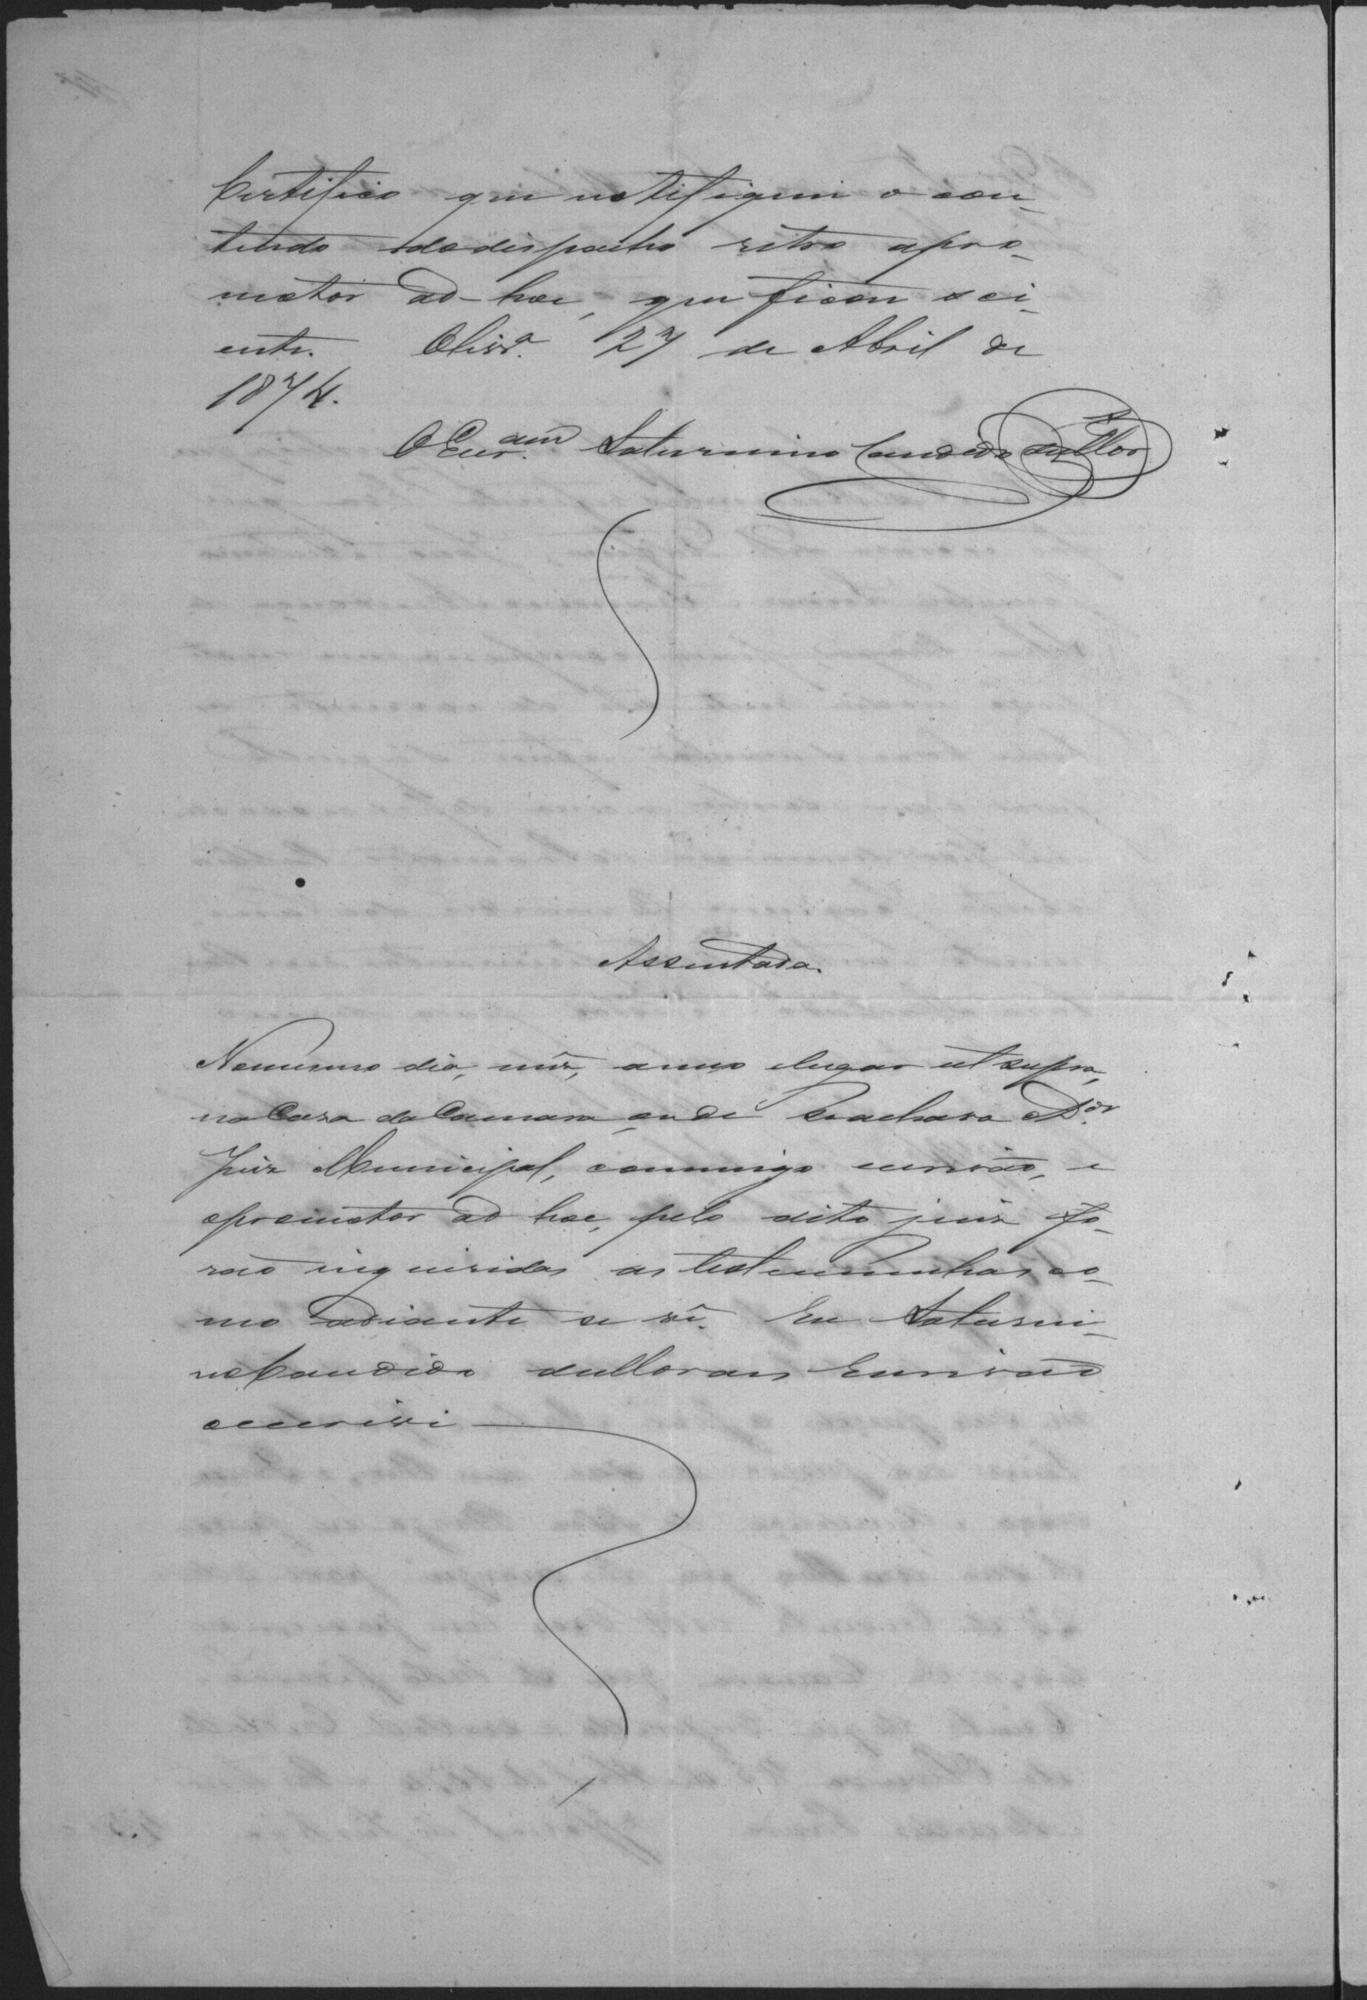 Certifico que notifiquei o con-
tendo do despacho retro o pro-
motor ad-hoc, que ficou sci-
ente. Olivr.ª 27 de Abril de
1874.
O Escr.am Saturnino Candido de Mor
Assentada.
No mesmo dia, mês, anno e lugar ut supra,
na Casa da Camara, onde se achava o D.or
Juiz Municipal, commigo escrivão, e
o promotor ad hoc, pelo dito juiz fo-
rão inquiridas as testemunhas co-
mo adiante se vê. Eu Saturni-
no Candido de Moraes Escrivão
o escrevi